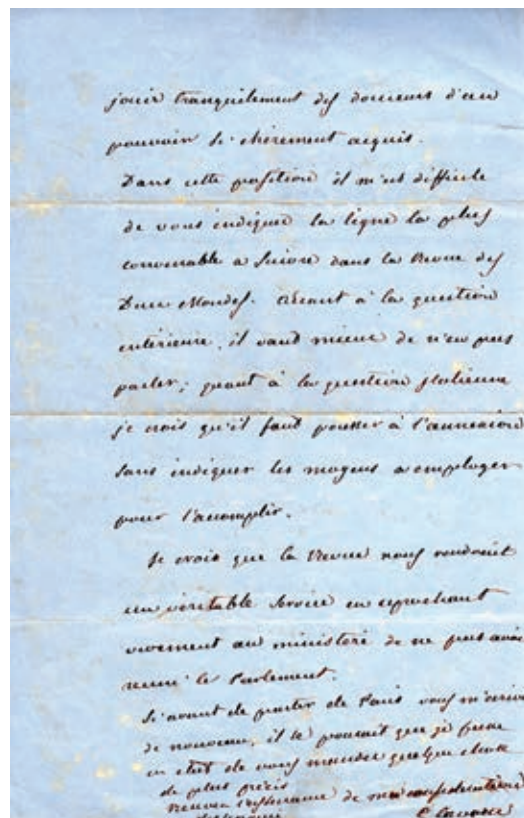 jouir tranquilement des douceurs d'un
pouvoir si chèrement acquis.
Dans cette position il m'est difficile
de vous indiquer la ligne la plus
convenable à suivre dans la Revue des
Deux Mondes. Quant à la question
intérieure, il vaut mieux de n'en pas
parler; quant à la question italienne
je crois qu'il faut pousser à l'annexion
sans indiquer les moyens a employer
pour l'accomplir.
Je crois que la Revue nous rendrait
un véritable service en reprochant
vivement au ministère de ne pas avoir
réuni le Parlement.
Si avant de partir de Paris vous m'écrivez
de nouveau, il se pourrait que je fusse
en état de vous mander quelque chose
de plus précis
l'assurance de ma considération
C. Cavour